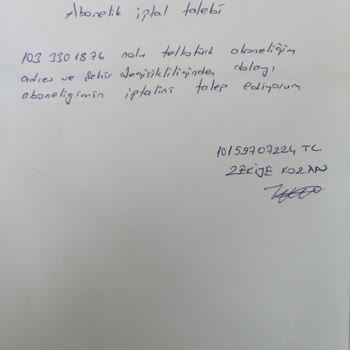 Abonelik iptal talebi
103 3301876 nolu telkotürk aboneliğim
adres ve şehir değişikliliğinden dolayı
aboneligimin iptalini talep ediyorum
10159707224 TC
ZEKİJE KOZAN